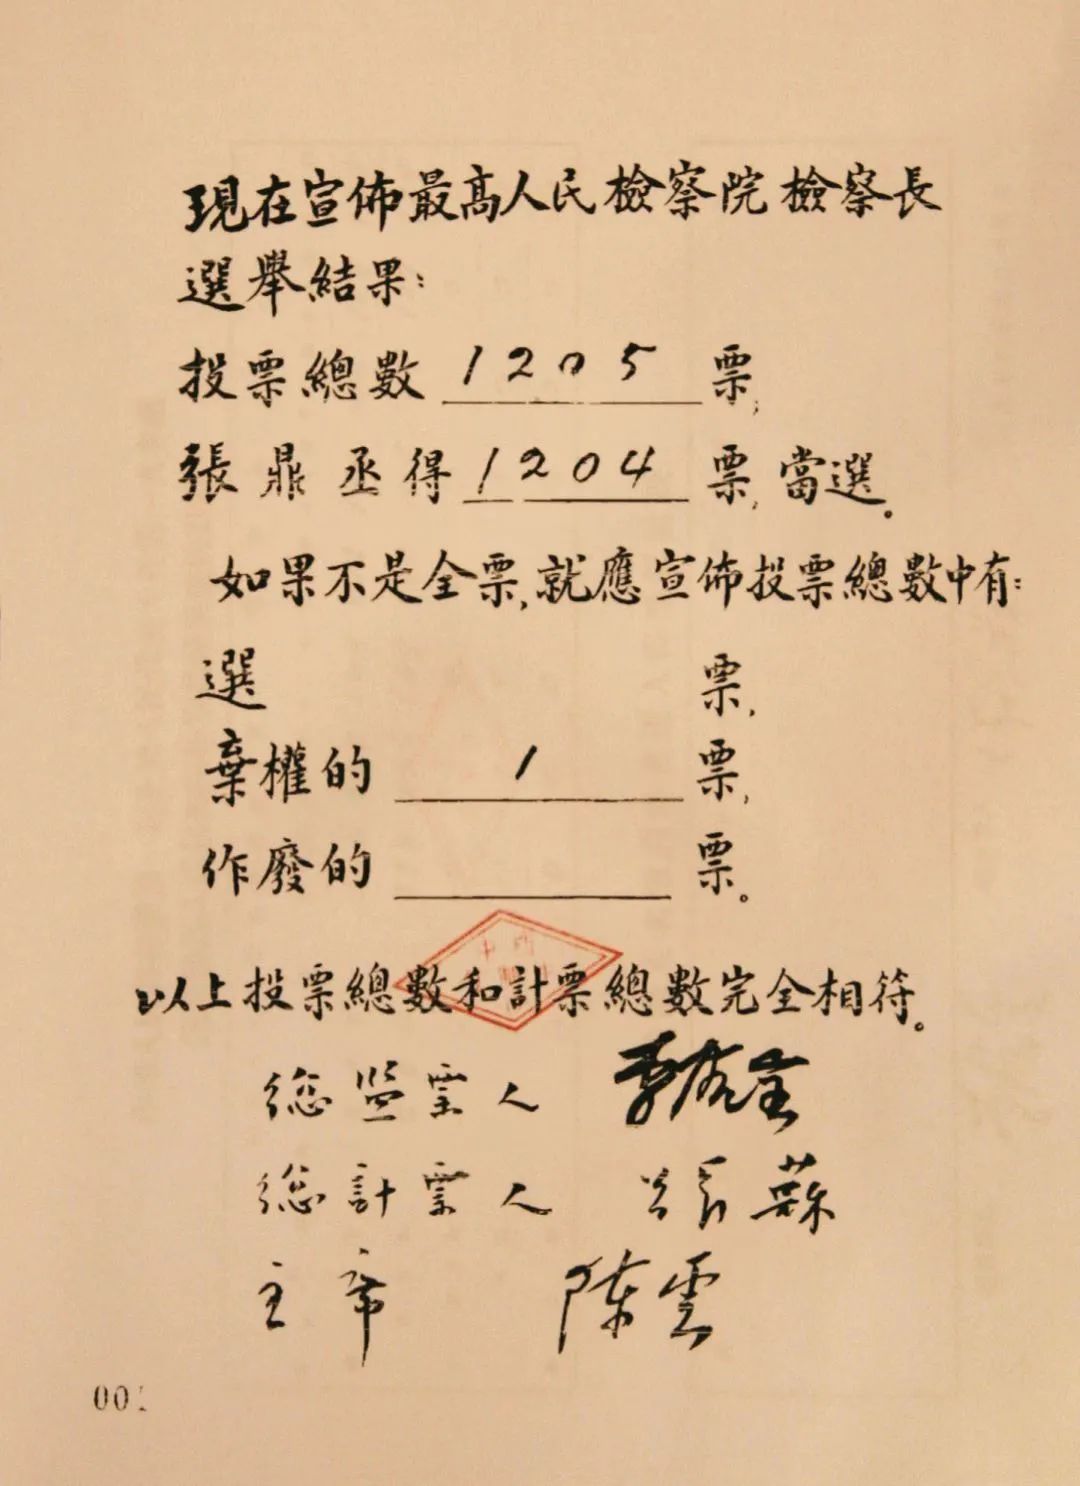 現在宣佈最高人民檢察院檢察長
選舉結果：
投票總數 1205 票，
張鼎丞得 1204 票，當選。
如果不是全票，就應宣佈投票總數中有：
選 票，
棄權的 1 票，
作廢的 票。
以上投票總數和計票總數完全相符。
總監票人
總計票人 張蘇
主席 陳雲
00